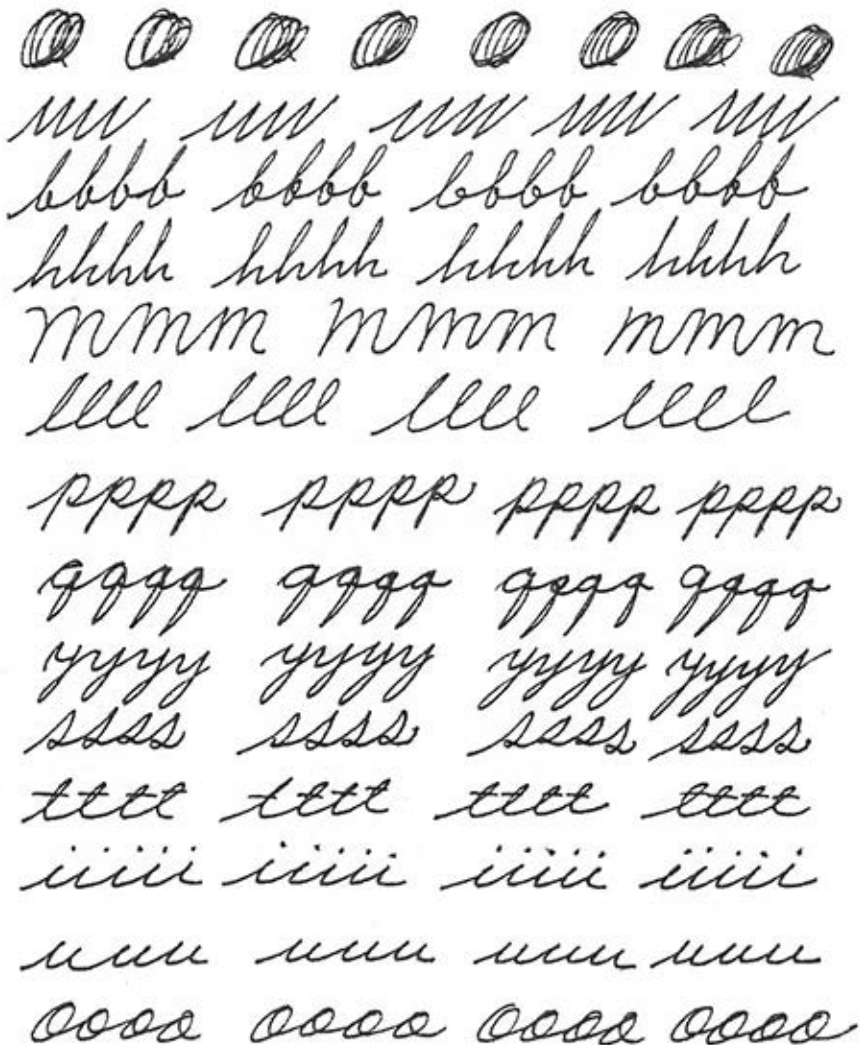 bbbb bbbb bbbb bbbb
hhhh hhhh hhhh hhhh
mmm mmm mmm
llll llll llll llll
pppp pppp pppp pppp
qqqq qqqq qqqq qqqq
yyyy yyyy yyyy yyyy
ssss ssss ssss ssss
tttt tttt tttt tttt
iiiii iiiii iiiii iiiii
uuu uuu uuu uuu
oooo oooo oooo oooo